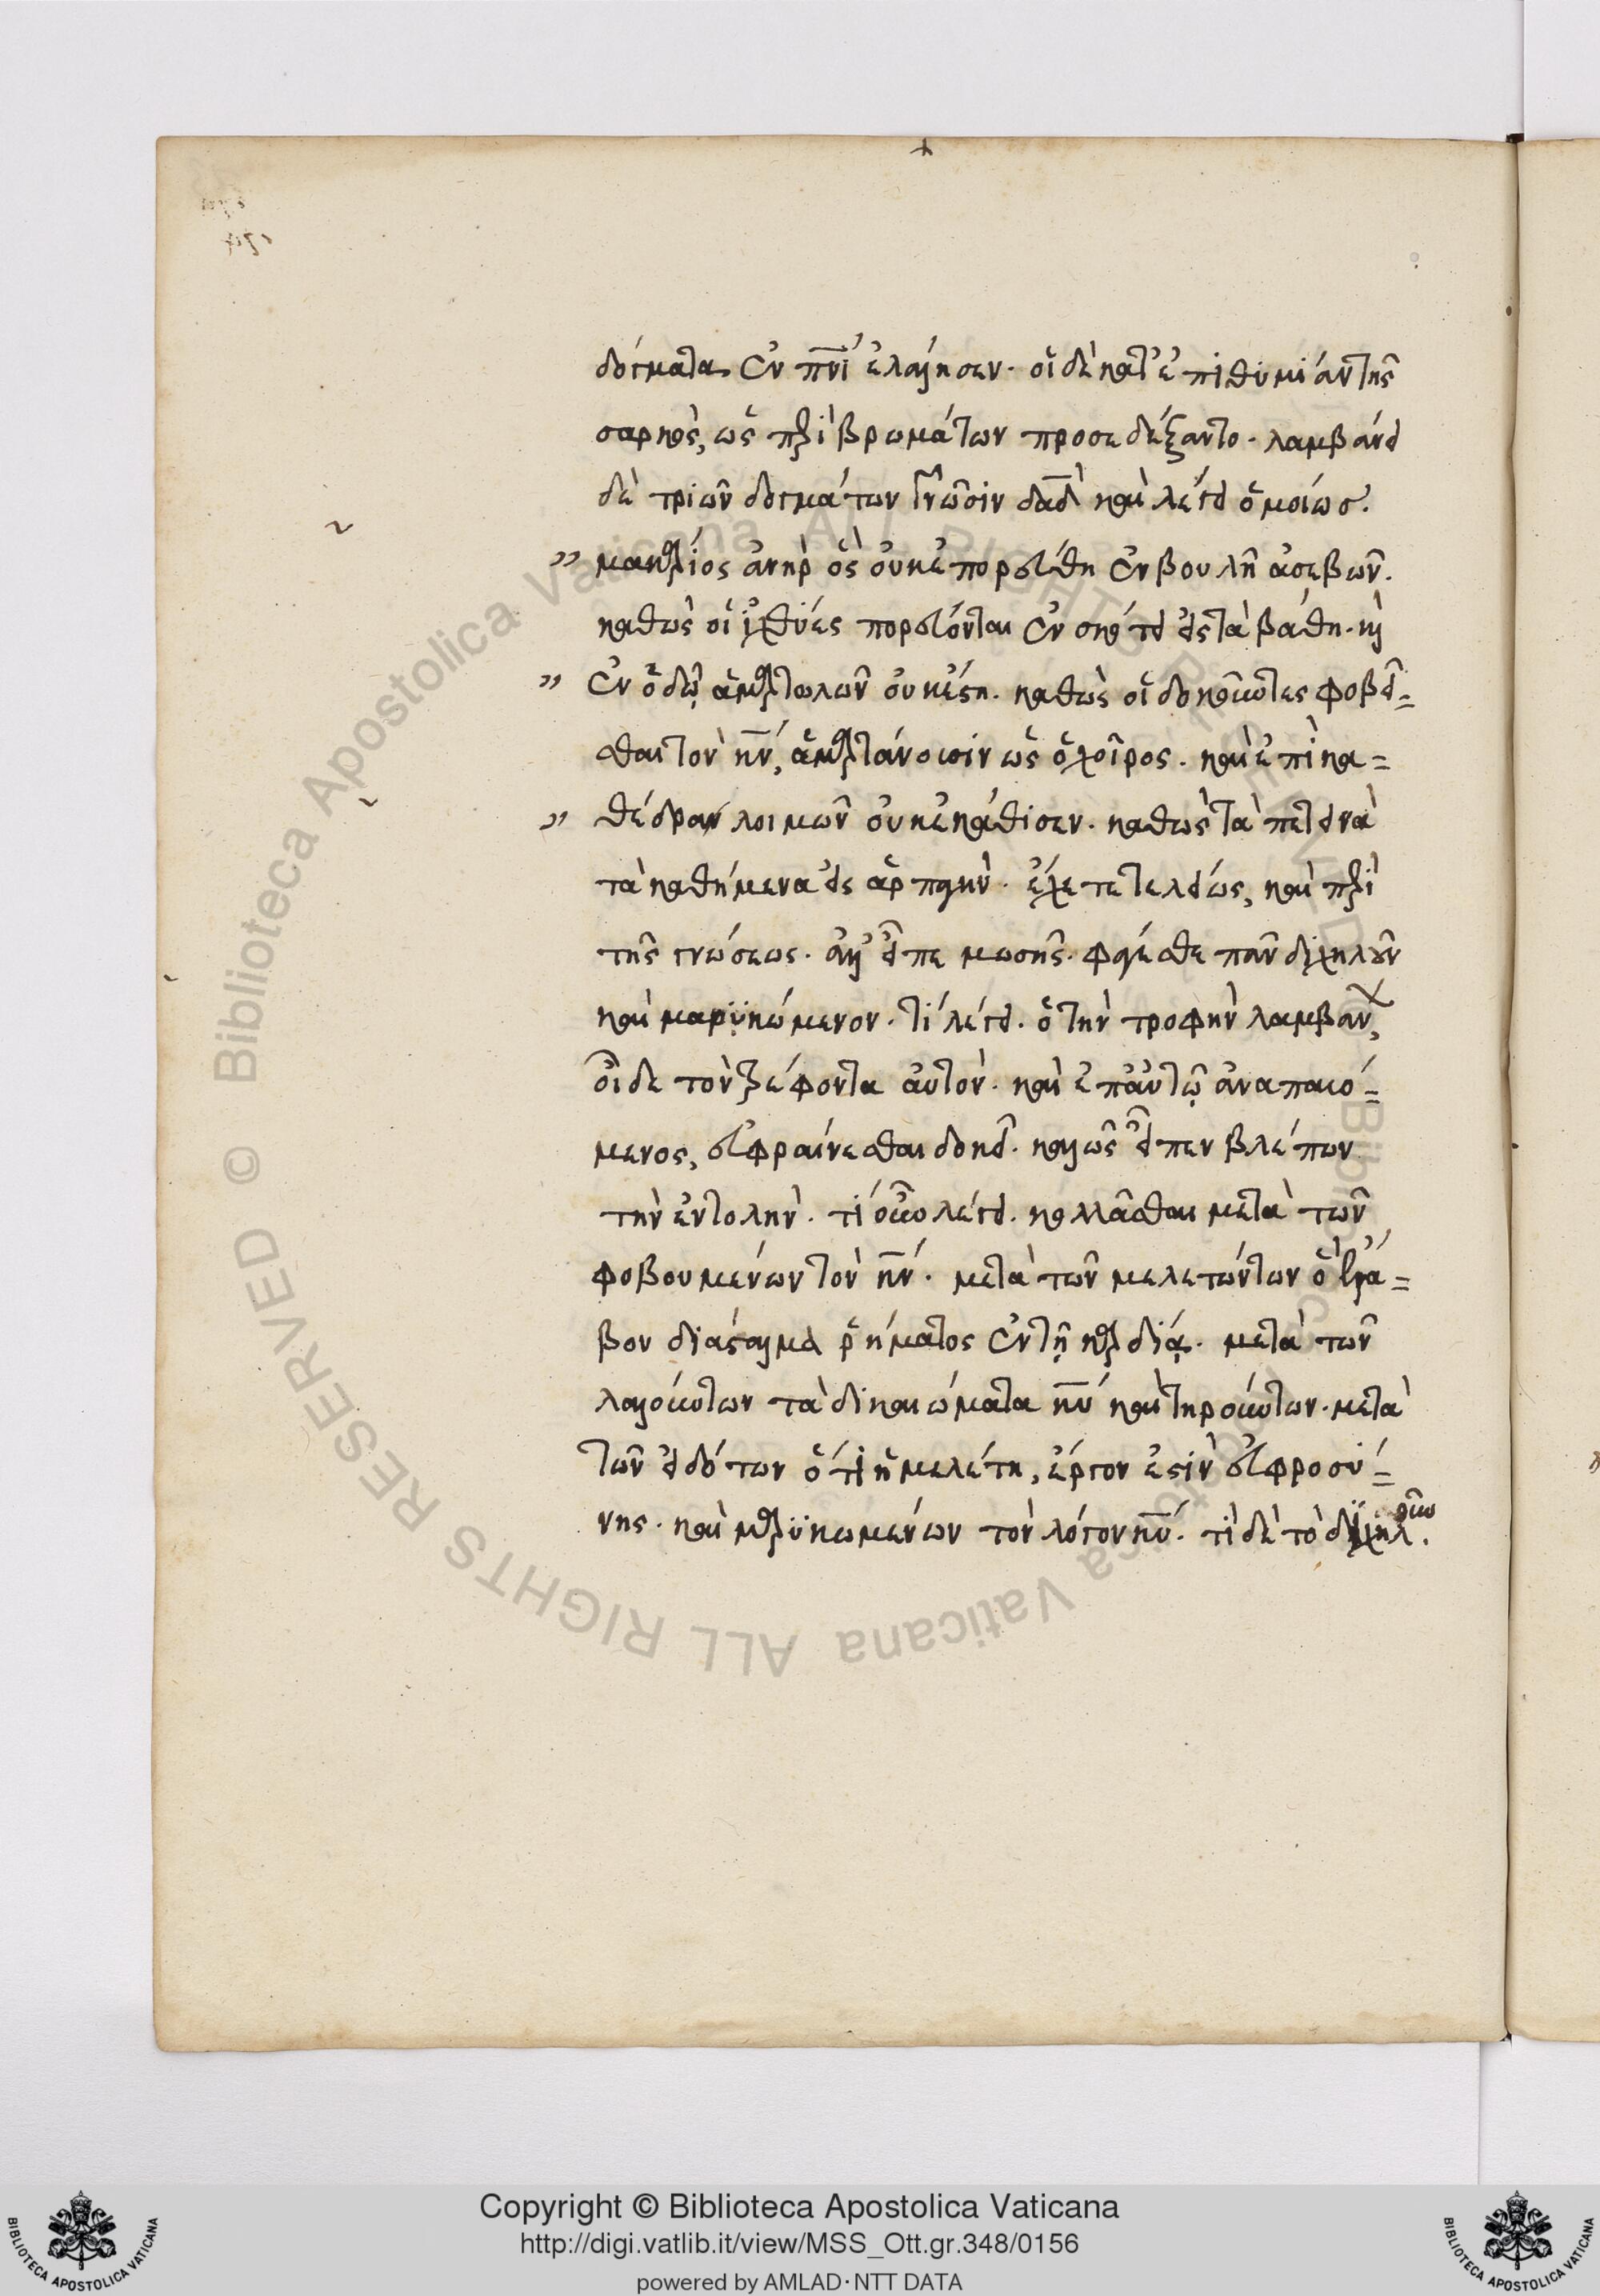 δόγματα ἐν πν̅ι ἐλάλησεν. οἱ δὲ κατ' ἐπιθυμίαν τῆς
σαρκὸς, ὡς περὶ βρωμάτων προσεδέξαντο. λαμβάνει
δὲ τριῶν δογμάτων γνῶσιν δα̅δ καὶ λέγει ὁμοίως.
" μακάριος ἀνὴρ ὃς οὐκ ἐπορεύθη ἐν βουλῇ ἀσεβῶν.
καθὼς οἱ ἰχθύες πορεύονται ἐν σκότει εἰς τὰ βάθη. κ
" ἐν ὁδῷ ἁμαρτωλῶν οὐκ ἔστη. καθὼς οἱ δοκοῦντες φοβεῖ=
σθαι τὸν κν̅, ἁμαρτάνουσιν ὡς ὁ χοῖρος. καὶ ἐπὶ κα=
" θέδραν λοιμῶν οὐκ ἐκάθισεν. καθὼς τὰ πετεινὰ
τὰ καθήμενα εἰς ἁρπαγήν. ἔχετε τελείως, καὶ περὶ
τῆς γνώσεως. ἀλλ' εἶπε μωσῆς. φάγεσθε πᾶν διχηλοῦν
καὶ μαρυκώμενον. τί λέγει. ὁ τὴν τροφὴν λαμβάν,
οἶδε τὸν τρέφοντα αὐτὸν. καὶ ἐπ' αὐτῷ ἀναπαυό=
μενος, εὐφραίνεσθαι δοκεῖ. καλῶς εἶπεν βλέπων
τὴν ἐντολήν. τί οὖν λέγει. κολλᾶσθαι μετὰ τῶν
φοβουμένων τὸν κν̅. μετὰ τῶν μελετώντων ὃ ἔλα=
βον διάσταλμα ῥήματος ἐν τῇ καρδίᾳ. μετὰ τῶν
λαλούντων τὰ δικαιώματα κυ̅ καὶ τηρούντων. μετὰ
τῶν εἰδότων ὅτι ἡ μελέτη, ἔργον ἐστὶν εὐφροσύ=
νης. καὶ μαρυκωμένων τὸν λόγον κυ̅. τί δὲ τὸ διχηλοῦν.
Copyright © Biblioteca Apostolica Vaticana
http://digi.vatlib.it/view/MSS_Ott.gr.348/0156
powered by AMLAD·NTT DATA
BIBLIOTECA APOSTOLICA VATICANA
BIBLIOTECA APOSTOLICA VATICANA
© Biblioteca Apostolica Vaticana ALL RIGHTS RESERVED
© Biblioteca Apostolica Vaticana ALL RIGHTS RESERVED